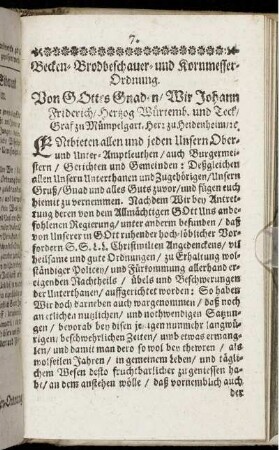 7.
Becken- Brodbeschauer- und Kornmesser-
Ordnung.
Von GOttes Gnaden/ Wir Johann
Friderich/ Hertzog Würtemb. und Teck/
Graf zu Mümpelgart/ Herr zu Heidenheim/ ꝛc.
ENtbieten allen und jeden Unsern Ober-
und Unter-Amptleuthen/ auch Burgermei-
stern/ Gerichten und Gemeinden: Deßgleichen
allen Unsern Unterthanen und Zugehörigen/ Unsern
Gruß/ Gnad und alles Guts zuvor/ und fügen euch
hiemit zu vernemmen. Nachdem Wir bey Antret-
tung deren von dem Allmächtigen GOtt Uns anbe-
fohlenen Regierung/ unter anderm befunden/ daß
von Unserer in GOtt ruhender hoch-löblicher Vor-
fordern S.S. L.L. Christmilten Angedenckens/ vil
heilsame und gute Ordnungen/ zu Erhaltung wol-
ständiger Policey/ und Fürkommung allerhand er-
eigenden Nachtheils/ übels und Beschwerungen
der Unterthanen/ auffgerichtet worden: So haben
Wir doch darneben auch wargenommen/ daß noch
an etlichen nutzlichen/ und nothwendigen Satzun-
gen/ bevorab bey disen jetzigen nunmehr langwü-
rigen/ beschwehrlichen Zeiten/ umb etwas ermang-
len/ und damit man dero so wol bey thewren/ als
wolfeilen Jahren/ in gemeinem Leben/ und tägli-
chem Wesen desto fruchtbarlicher zu geniessen ha-
be/ an dem anstehen wölle/ daß vornemblich auch
der